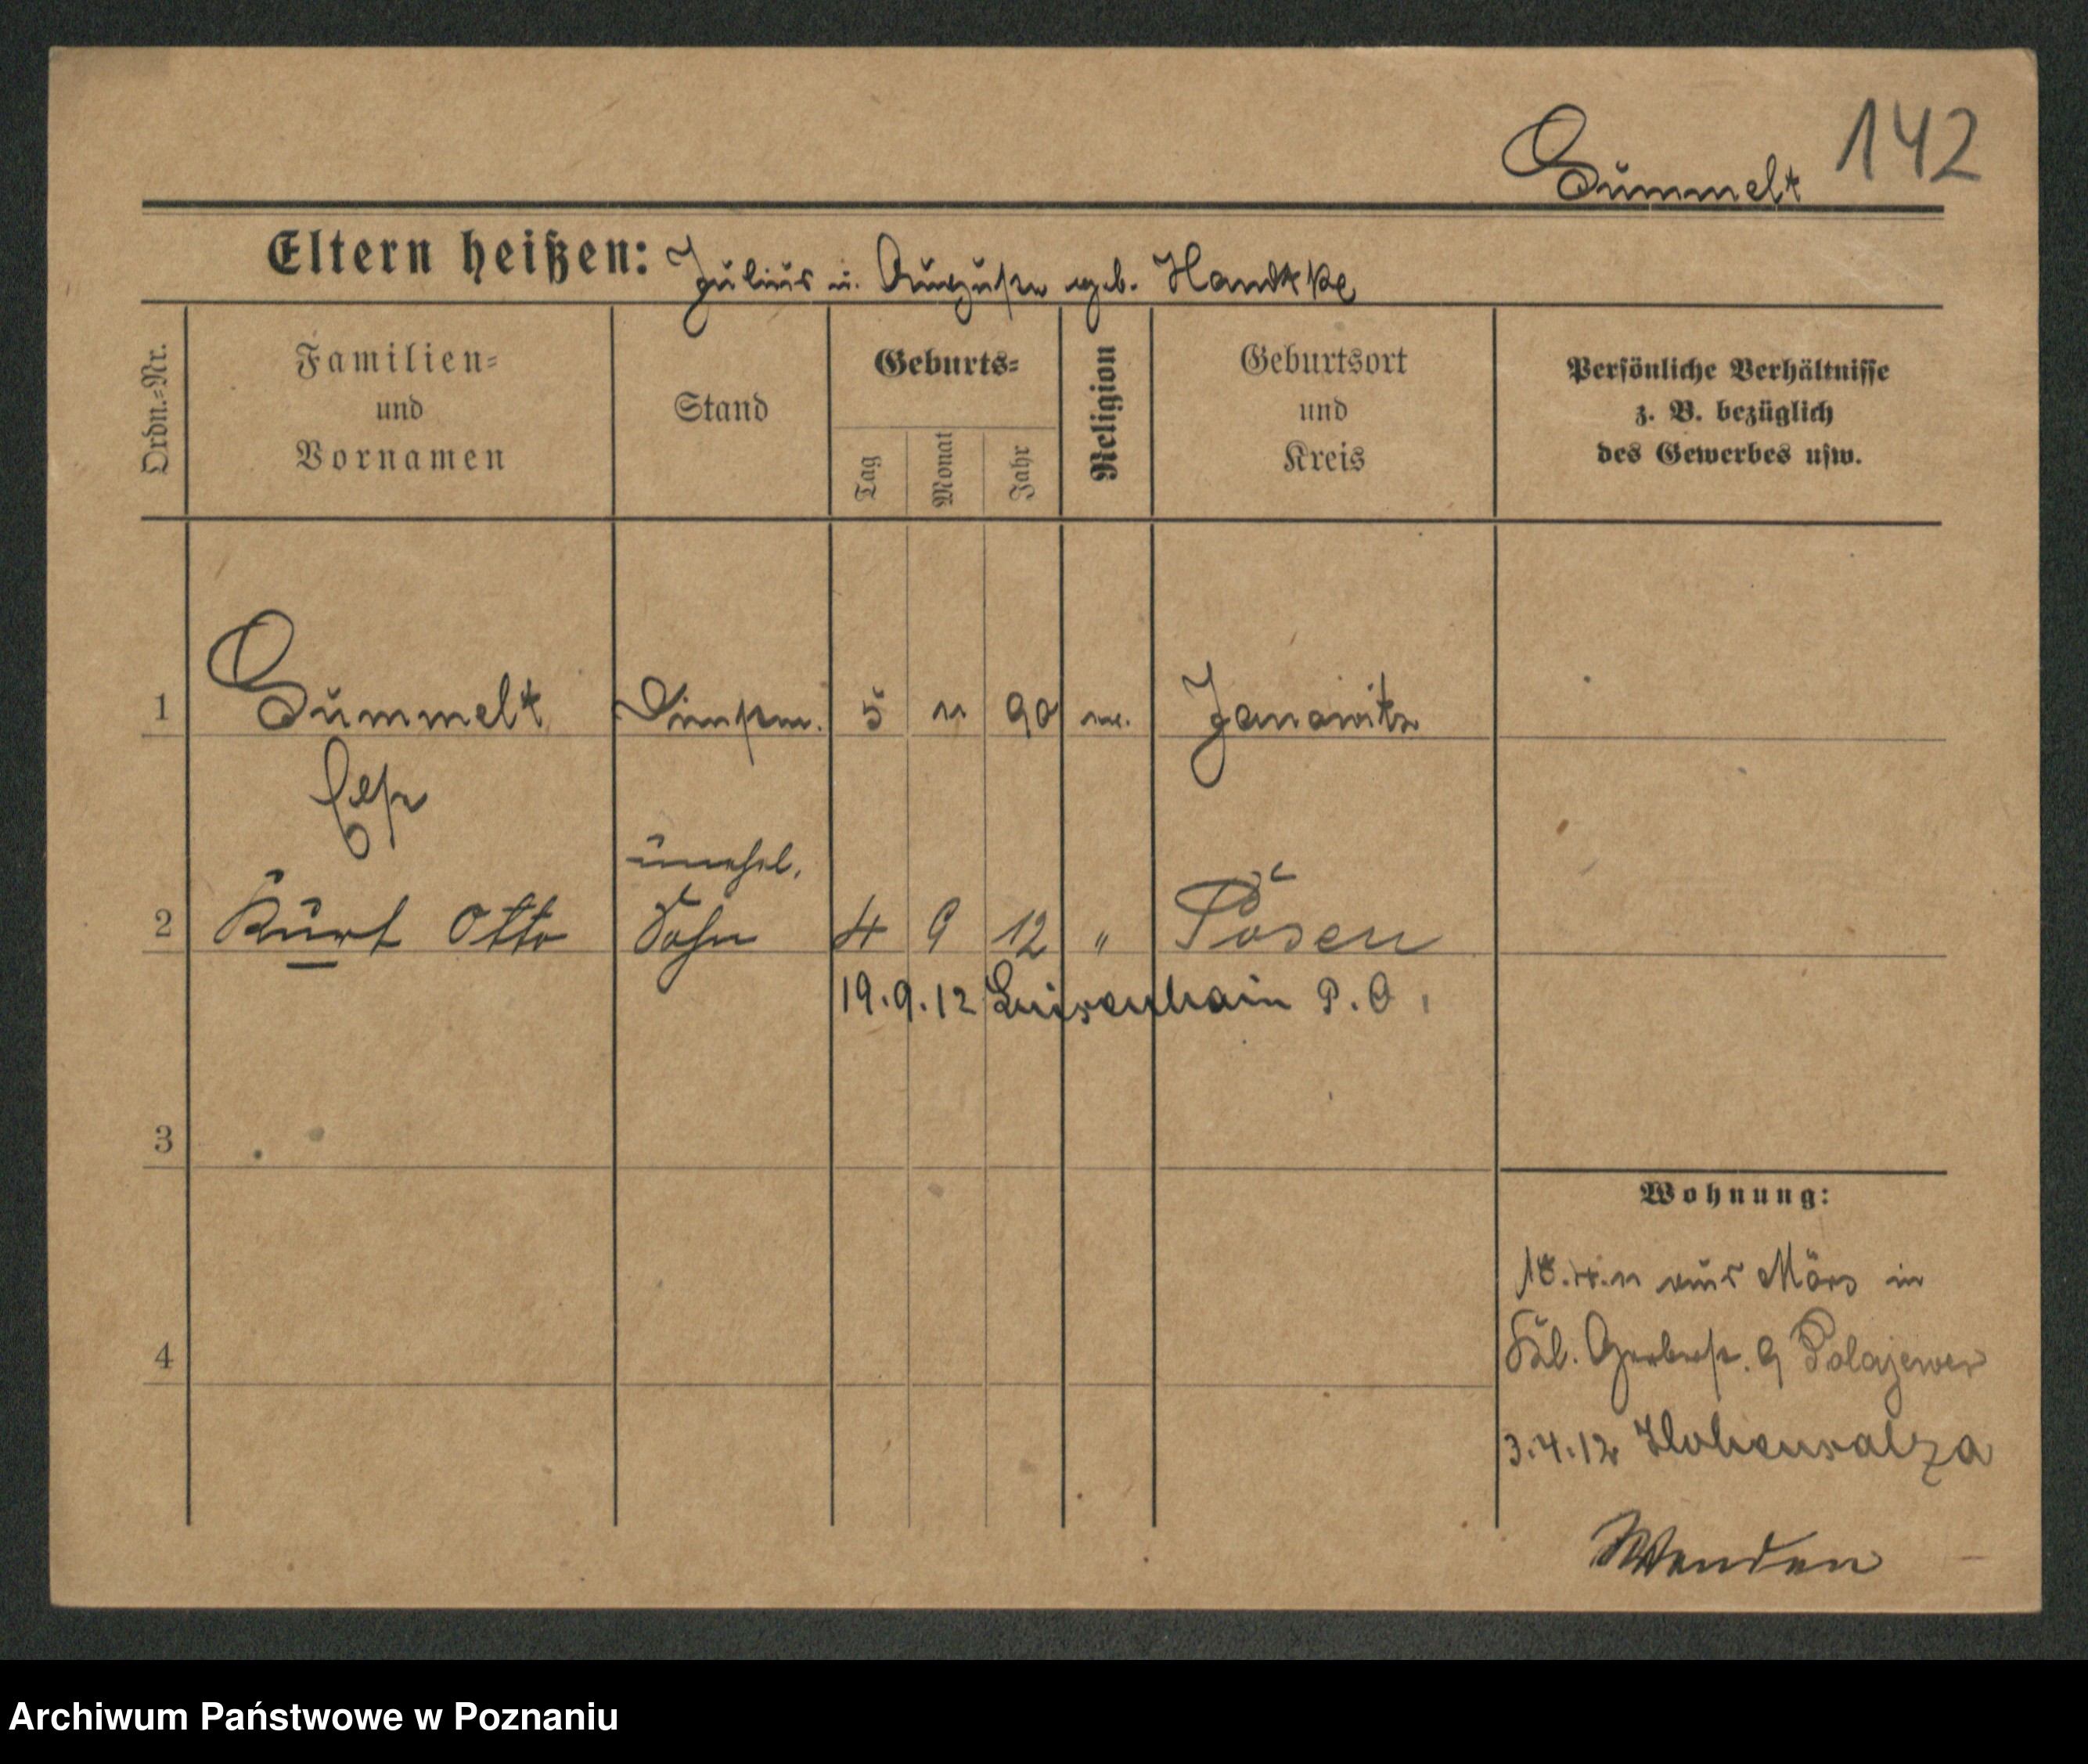 142
Gummelt
Eltern heißen: Julius u. Auguste geb. Handtke
Ordn.-Nr.
Familien-
und
Vornamen
Stand
Geburts-
Tag
Monat
Jahr
Religion
Geburtsort
und
Kreis
Persönliche Verhältnisse
z. B. bezüglich
des Gewerbes usw.
1 Gummelt Dienstm. 5 11 90 ev. Janowitz
unehel.
2 Kurt Otto Sohn 4 9 12 " Posen
19.9.12 Luisenhain P. O.
3
Wohnung:
aus Mörs in
4
Gerberst. 9 Polajewer
3.4.12 Hohensalza
Wenden
Archiwum Państwowe w Poznaniu